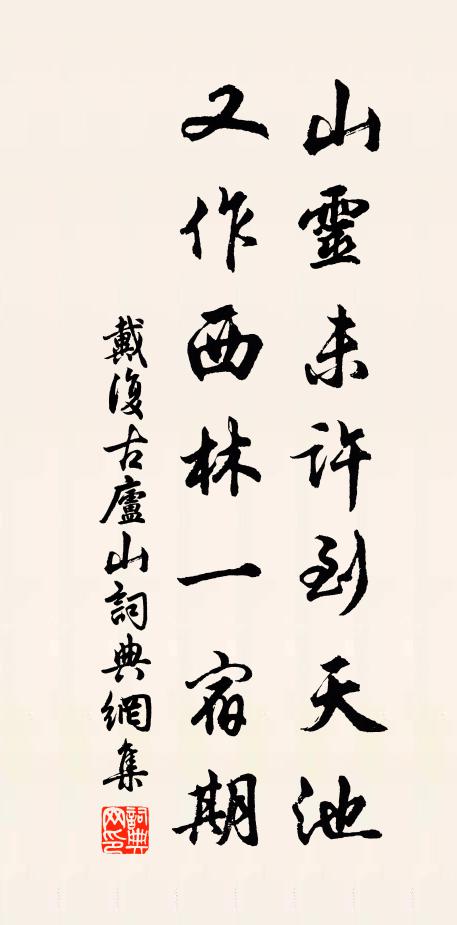 山靈未許到天池
又作西林一宿期
戴復古廬山詞典網集
詞典網印